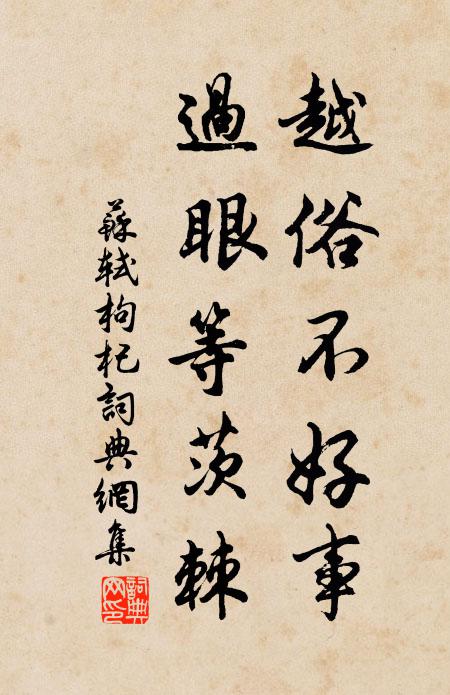 越俗不好事
過眼等茨棘
蘇軾枸杞詞典網集
詞典網印